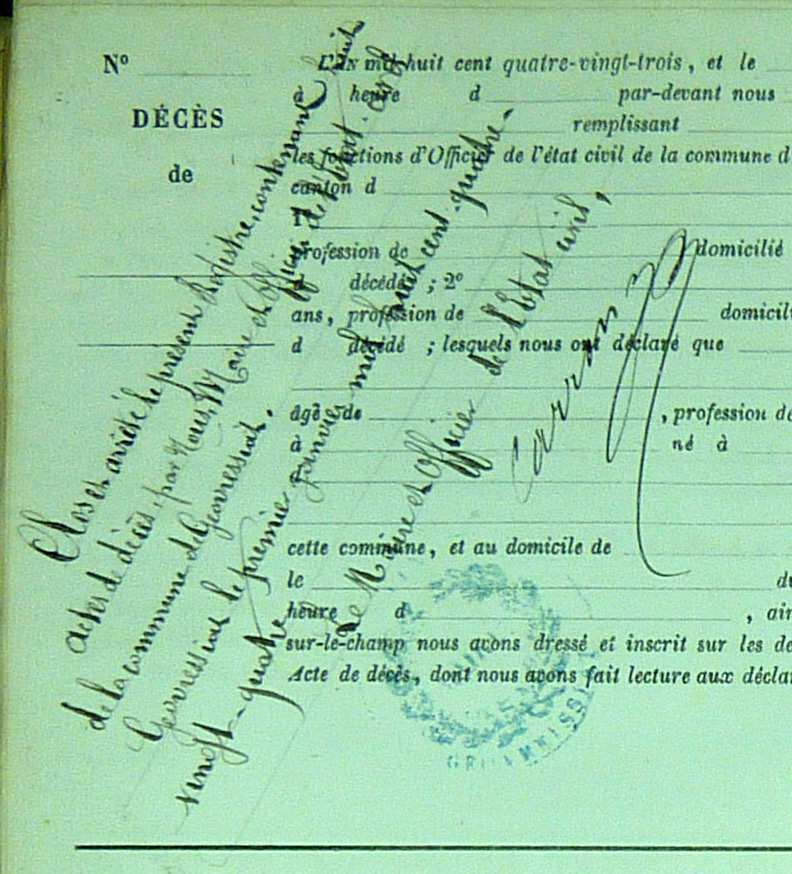 N°
DÉCÈS
de
L'AN mil huit cent quatre-vingt-trois, et le
à heure d par-devant nous
remplissant
les fonctions d'Officier de l'état civil de la commune d
canton d
1°
profession de domicilié
d décédé ; 2°
ans, profession de domicili
d décédé ; lesquels nous ont déclaré que
âgé de , profession de
à né à
cette commune, et au domicile de
le du
heure d , ain
sur-le-champ nous avons dressé et inscrit sur les de
Acte de décès, dont nous avons fait lecture aux déclar
Clos et arrêté le présent Registre, contenant huit
actes de décès, par Nous, Maire et Officier de l'Etat-civil
de la commune de Geovressiat.
Geovressiat le premier janvier mil huit cent quatre-
vingt-quatre
Le Maire et Officier de l'Etat civil,